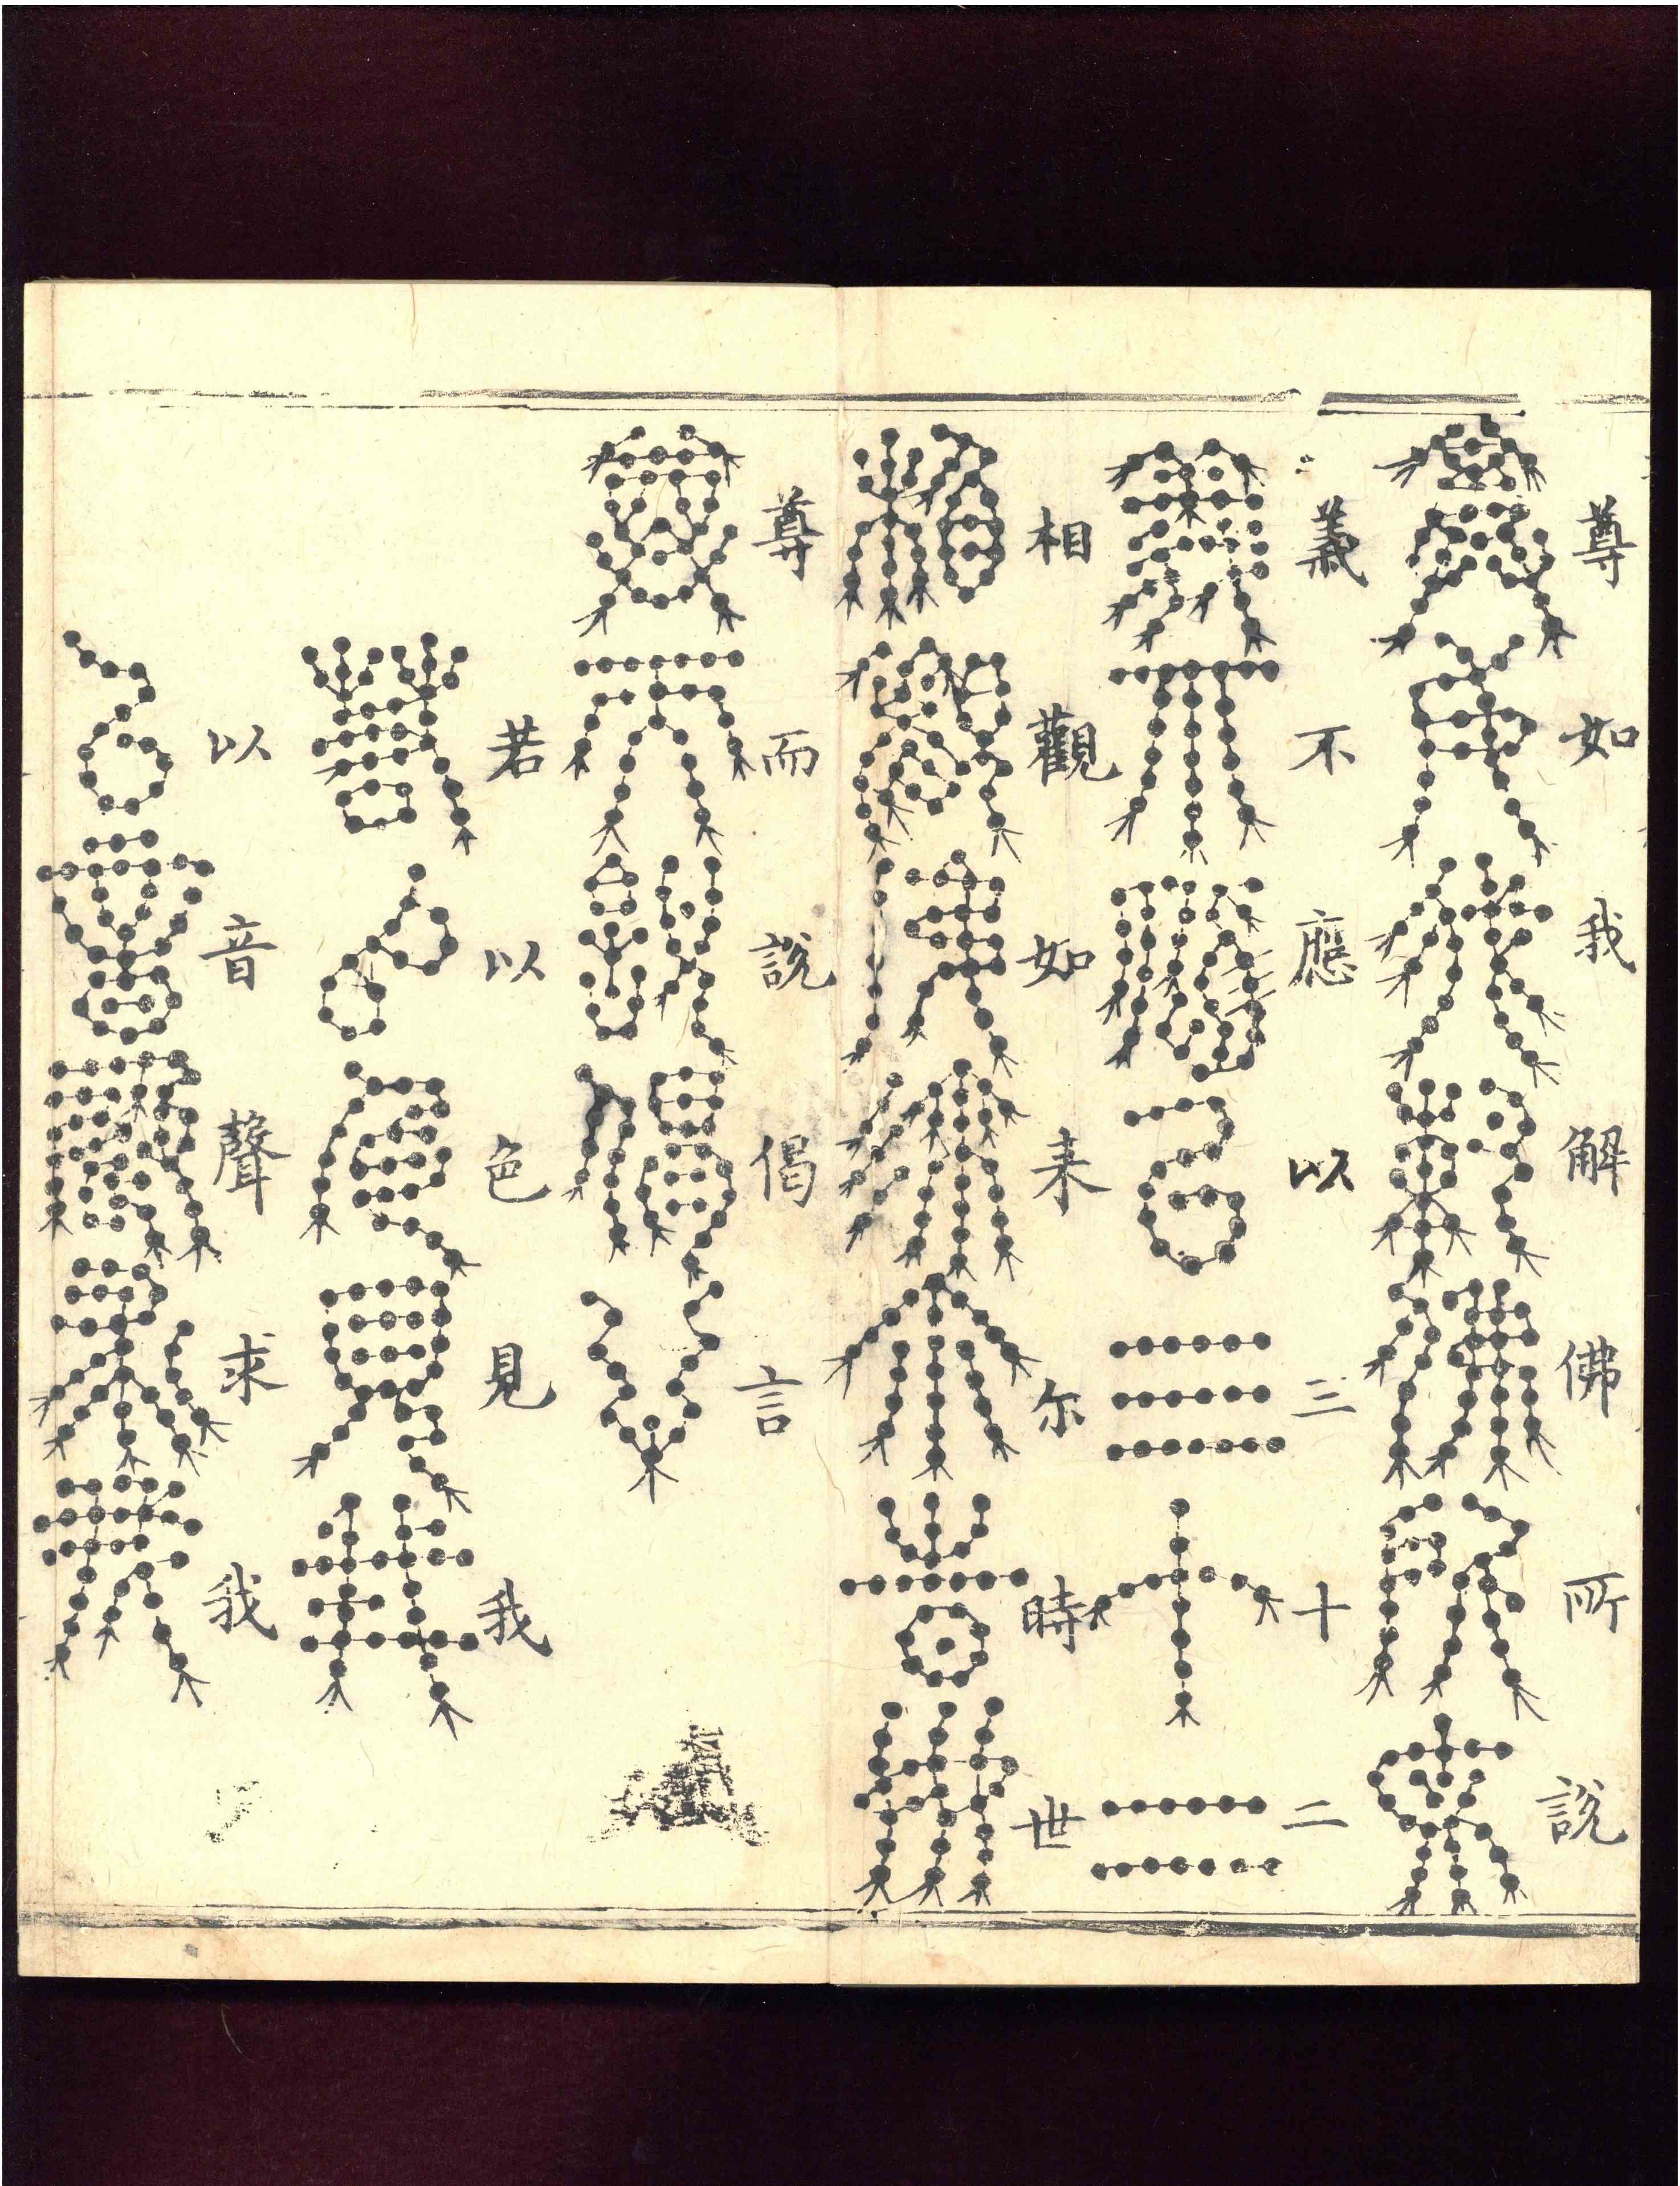 尊如我解佛所説
義不應以三十二
相觀如来尓時世
尊而說偈言
若以色見我
以音聲求我